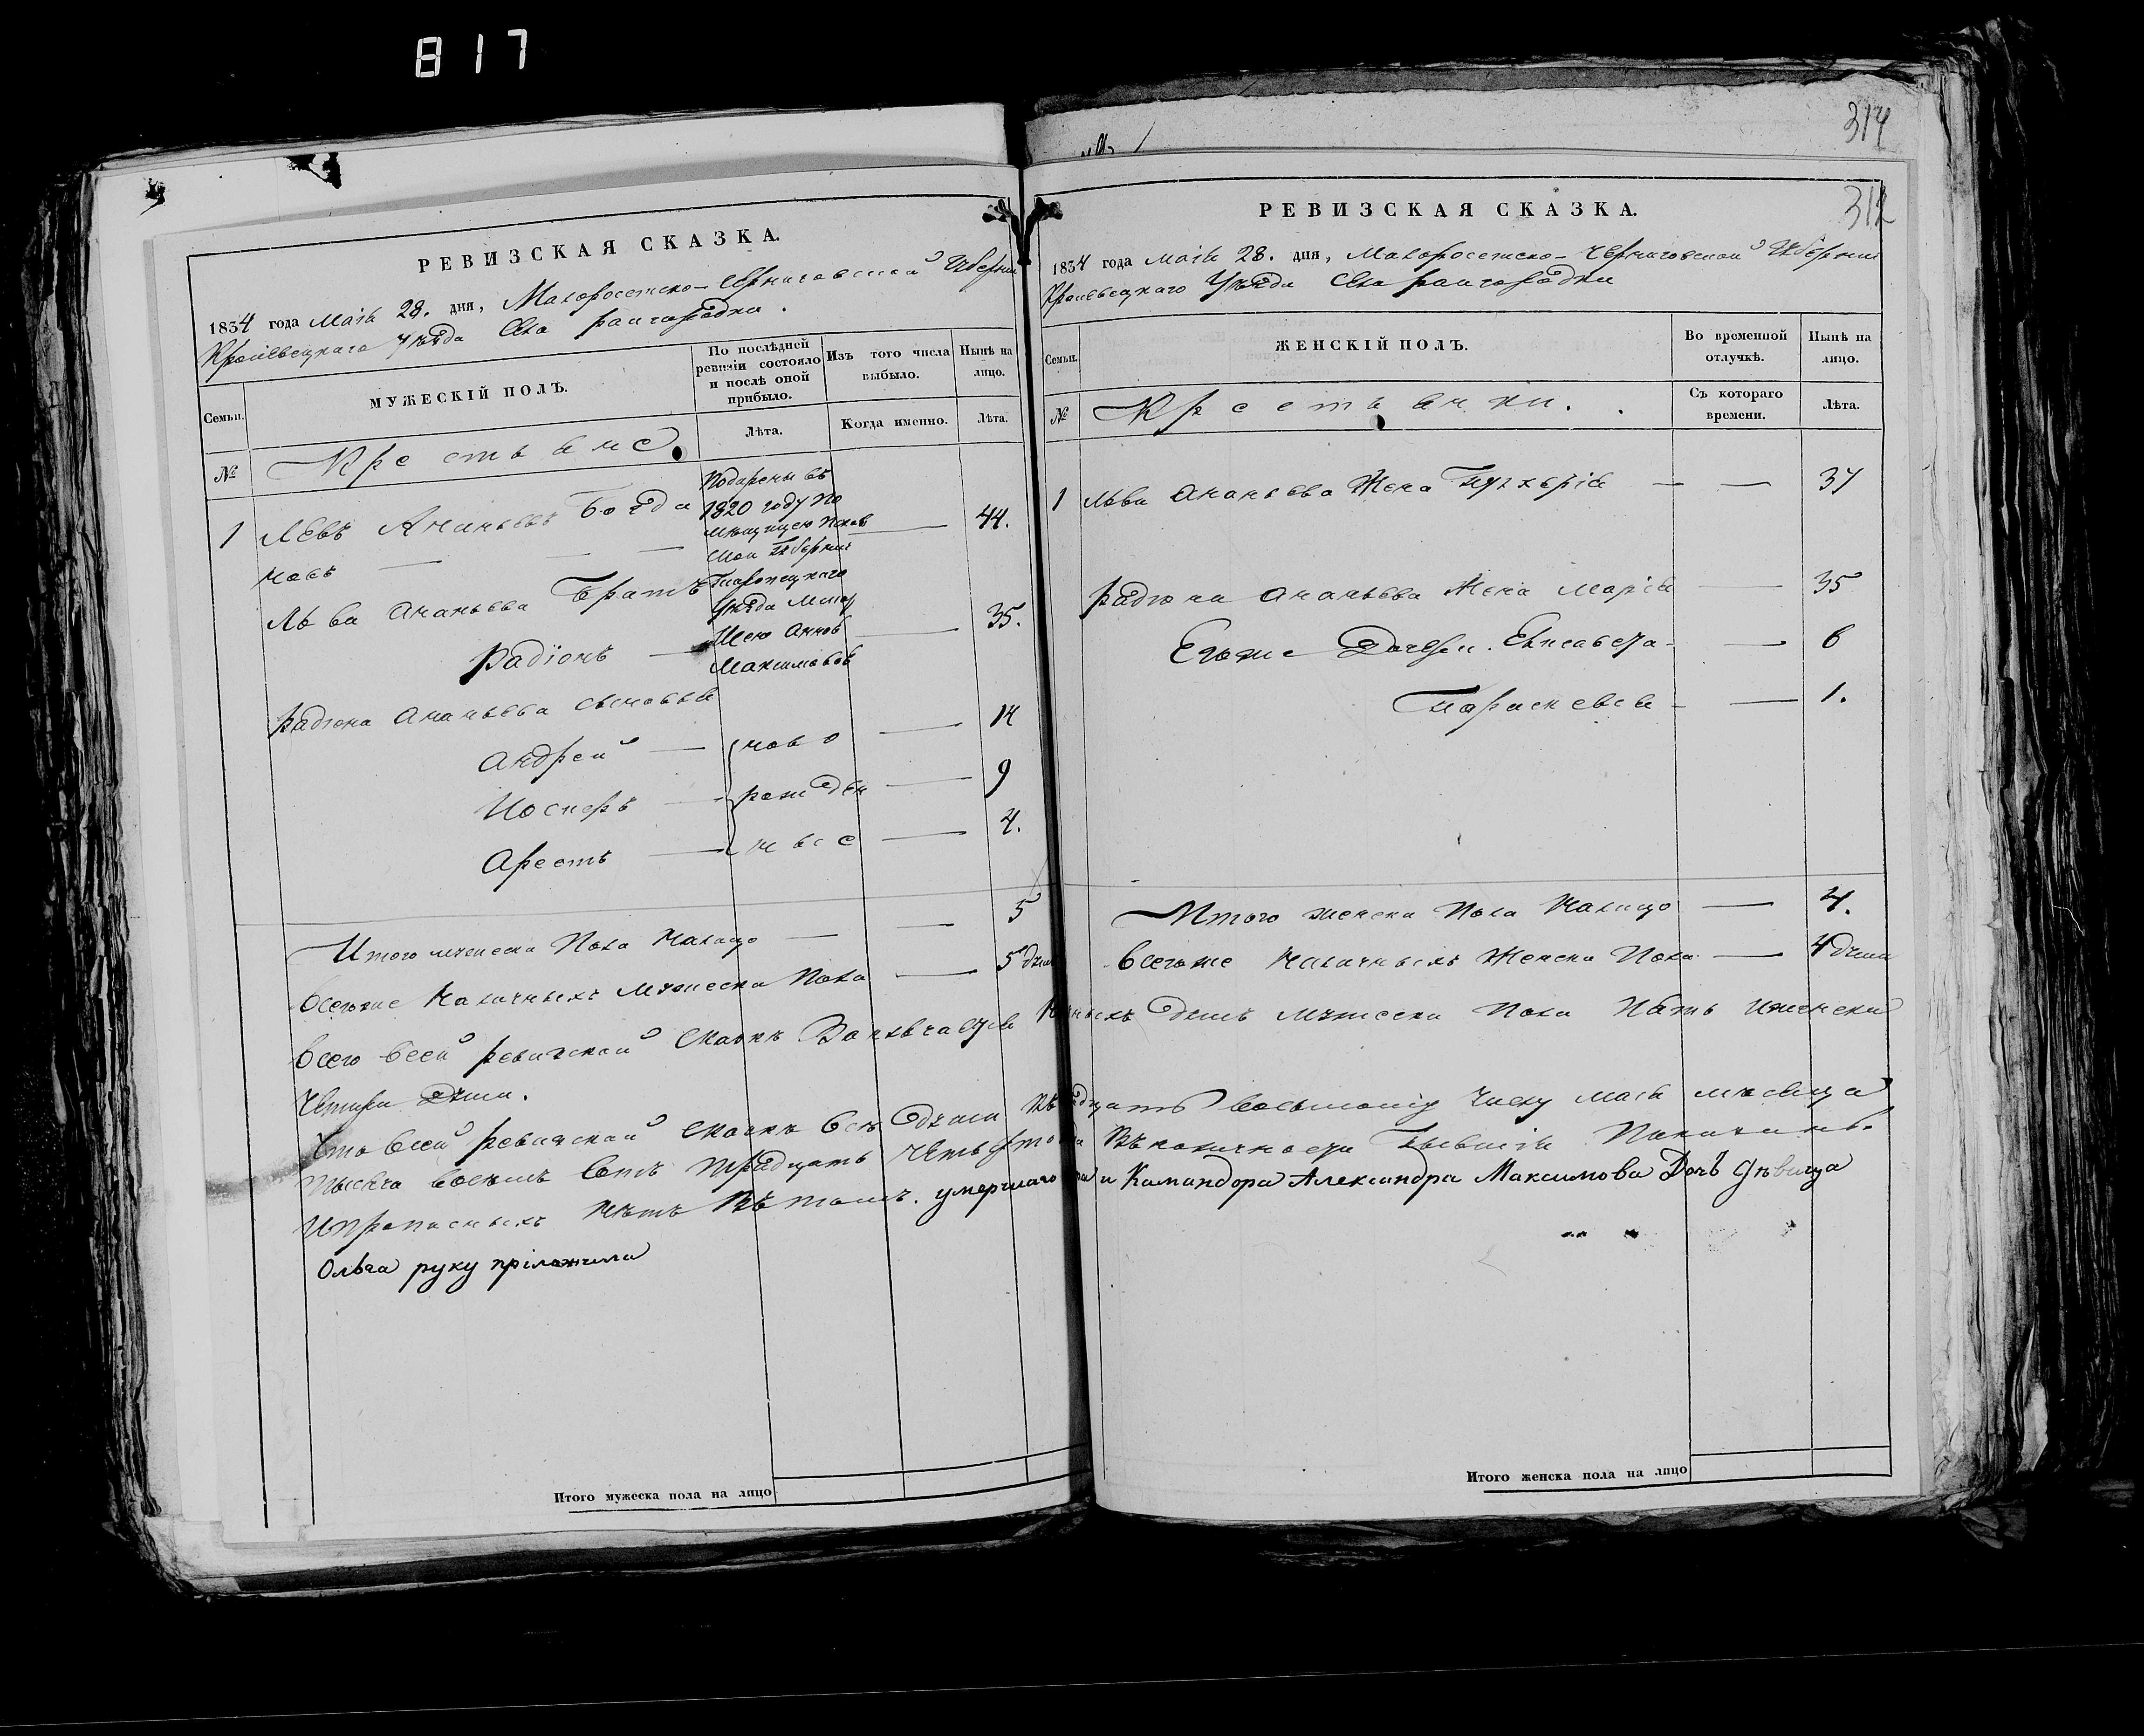 817
314
312
РЕВИЗСКАЯ СКАЗКА.
1834 года Маія 28. дня, Малоросейско-Черниговской Губерни
Кролевецкаго Уѣзда Села райгородки.
Семьи.
МУЖЕСКІЙ ПОЛЪ.
По послѣдней ревизіи состояло и послѣ оной прибыло.
Изъ того числа выбыло.
Нынѣ на лицо.
Лѣта.
Когда именно.
Лѣта.
№
Крестьяне.
1 Левъ Ананьевъ
новъ
44.
Подарены въ
1820 году По
мѣщицею Псков
ской Губерніи
Торопецкаго
Уѣзда
Максимовой
Льва Ананьева Братъ
Радіонъ
35.
Радіона Ананьева сыновья
Андрей
14
Иосифъ
9
Арестъ
4.
ново
рожден
ные
Итого мужеска Пола Налицо
5
Всегоже Наличныхъ Мужеска Пола
5 душ
РЕВИЗСКАЯ СКАЗКА.
1834 года Маія 28. дня, Малоросейско-Черниговской Губерніи
Кролевецкаго Уѣзда Села райгородки
Семьи.
ЖЕНСКІЙ ПОЛЪ.
Во временной отлучкѣ.
Нынѣ на лицо.
№
Крестьянки.
Съ котораго времени.
Лѣта.
1 Льва Ананьева Жена Пулхерія
37
Радіона Ананьева Жена Марія
35
Егоже Дочери. Елисавета
6
Парасковья
1.
Итого женска Пола Налицо
4.
Всегоже Наличныхъ Женска Пола
4 души
Всего Всей ревизской Сказкѣ Заключается душъ мужеска Пола Пять иженска
Четыри Души.
Что Всей ревизской Сказкѣ Всѣ Души Восьмому Числу Маія мѣсяца
тысяча восемь Сотъ тридцать Четвертого
Ипрописныхъ Нѣтъ Въ томъ. умершаго и Камандора Александра Максимова Дочь Дѣвица
Ольга руку пріложила
Итого мужеска пола на лицо
Итого женска пола на лицо